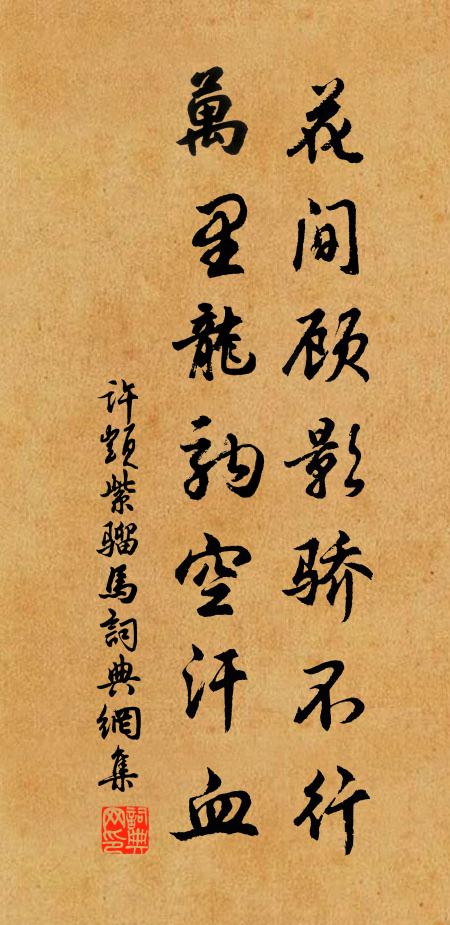 花间顾影骄不行
萬里龍駒空汗血
许顗紫骝馬詞典網集
詞典網印